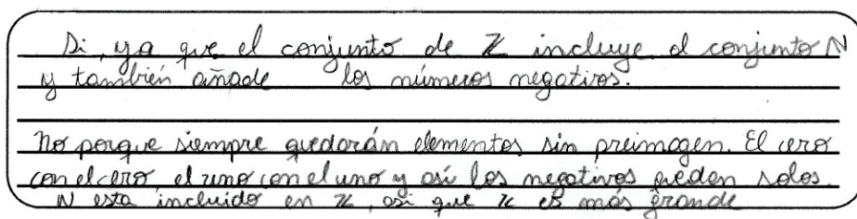 Si, ya que el conjunto de Z incluye el conjunto N
y también añade los números negativos.
No porque siempre quedarán elementos sin preimagen. El cero
con el cero el uno con el uno y así los negativos queden solos.
N esta incluido en Z, asi que Z es más grande